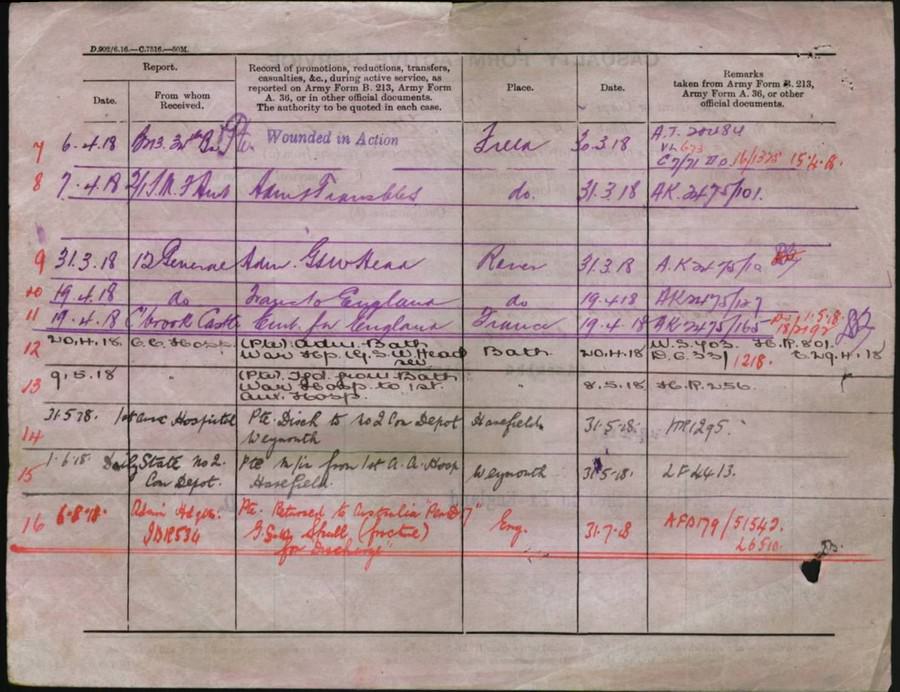 D.902/6.16.—C.7516.—50M.
Report.
Record of promotions, reductions, transfers,
casualties, &c., during active service, as
reported on Army Form B. 213, Army Form
A. 36, or in other official documents.
The authority to be quoted in each case.
Place.
Date.
Remarks
taken from Army Form B. 213,
Army Form A. 36, or other
official documents.
Date.
From whom
Received.
7 6.4.18 Pte Wounded in Action 30.3.18 A.T.
16/1375 15.4.18.
8 7.4.18 do. 31.3.18 AK.2475/101.
9 31.3.18 12 General Adm. GSW Head Rouen 31.3.18 A.K 2475/10
10 19.4.18 do Trans to England do 19.4.18 AK2475/127
11 19.4.18 C'brook Castle Emb. for England France 19.4.18 AK2475/165 1.5.18.
12 20.4.18. C.C. Hosp. (Pte) adm. Bath Bath 20.4.18 W.S.403. H.R.801.
War Hp. (G.S.W. Head D.C.33/1218. 29.4.18
sev
13 9.5.18 " (Pte). Tfd. from Bath 8.5.18 H.R.256.
War Hosp. to 1st.
Aux. Hosp.
14 31.5.18. 1st Aux Hospital Pte. Disch to No 2 Con Depot Harefield 31.5.18. HR1295.
Weymouth
15 1.6.18 Daily State No 2. Pte M/in from 1st A. A. Hosp Weymouth 31.5.18. LF4413.
Con Depot. Harefield
16 6.8.18. Admin Hdqrs. Pte. Returned to Australia Eng. 31.7.18 AFD179/51542.
IDR534 Skull (fracture) L6510.
for Discharge"